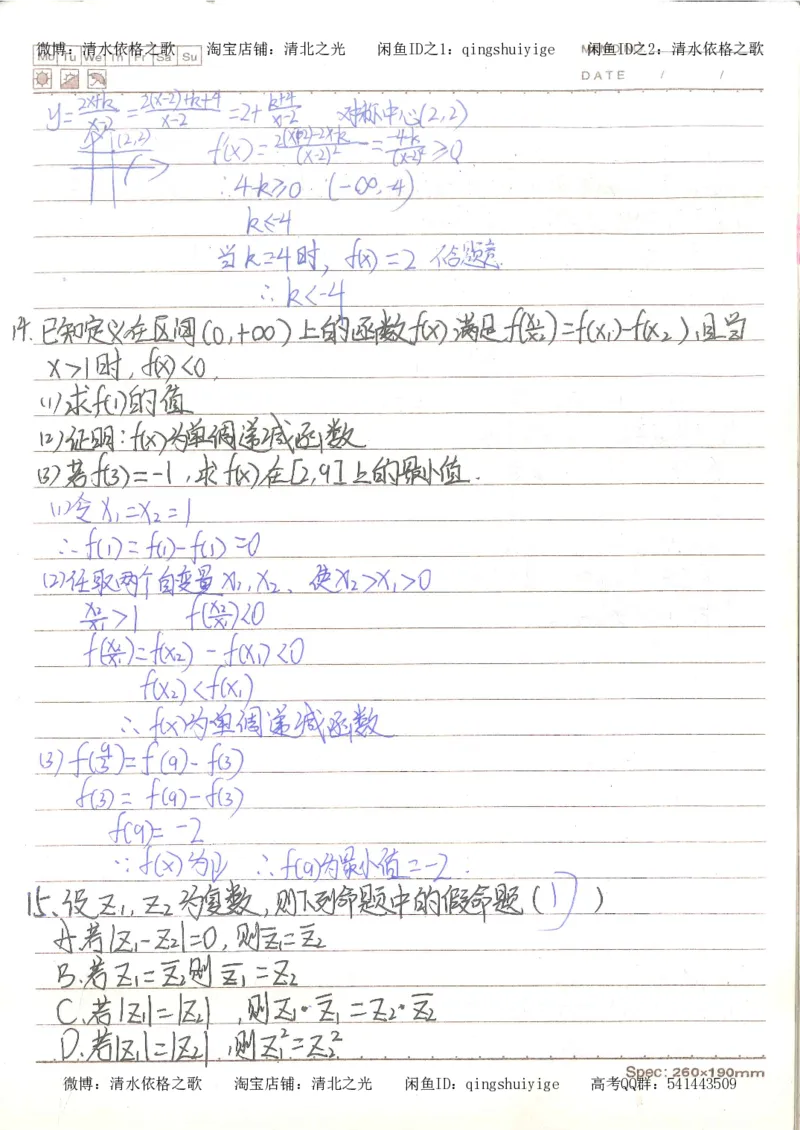 微博：清水依格之歌 淘宝店铺：清北之光 闲鱼ID之1：qingshuiyige 闲鱼ID之2：清水依格之歌
Mo Tu We Th Fr Sa Su
DATE / /
y=\frac{2x+k}{x-2}=\frac{2(x-2)+k+4}{x-2}=2+\frac{k+4}{x-2} 对称中心(2,2)
(2,2)
∴-4-k≥0 (-∞,-4)
k≤-4
当k=-4时, f(x)=2
∴k<-4
14.已知定义在区间(0,+∞)上的函数f(x)满足f(\frac{x_1}{x_2})=f(x_1)-f(x_2),且当
x>1时,f(x)<0.
(1)求f(1)的值
(2)证明:f(x)为单调递减函数
(3)若f(3)=-1,求f(x)在[2,9]上的最小值.
(1)令x_1=x_2=1
∴f(1)=f(1)-f(1)=0
(2)任取两个自变量x_1,x_2、使x_2>x_1>0
\frac{x_2}{x_1}>1 f(\frac{x_2}{x_1})<0
f(\frac{x_2}{x_1})=f(x_2)-f(x_1)<0
f(x_2)<f(x_1)
∴f(x)为单调递减函数
(3)f(\frac{9}{3})=f(9)-f(3)
f(3)=f(9)-f(3)
f(9)=-2
∵f(x)为↓ ∴f(9)为最小值=-2.
15、设z_1,z_2为复数,则下列命题中的假命题(D)
A.若|z_1-z_2|=0,则\bar{z}_1=\bar{z}_2
B.若z_1=\bar{z}_2则\bar{z}_1=z_2
C.若|z_1|=|z_2|,则z_1·\bar{z}_1=z_2·\bar{z}_2
D.若|z_1|=|z_2|,则z_1^2=z_2^2
Spec: 260×190mm
微博：清水依格之歌 淘宝店铺：清北之光 闲鱼ID：qingshuiyige 高考QQ群：541443509